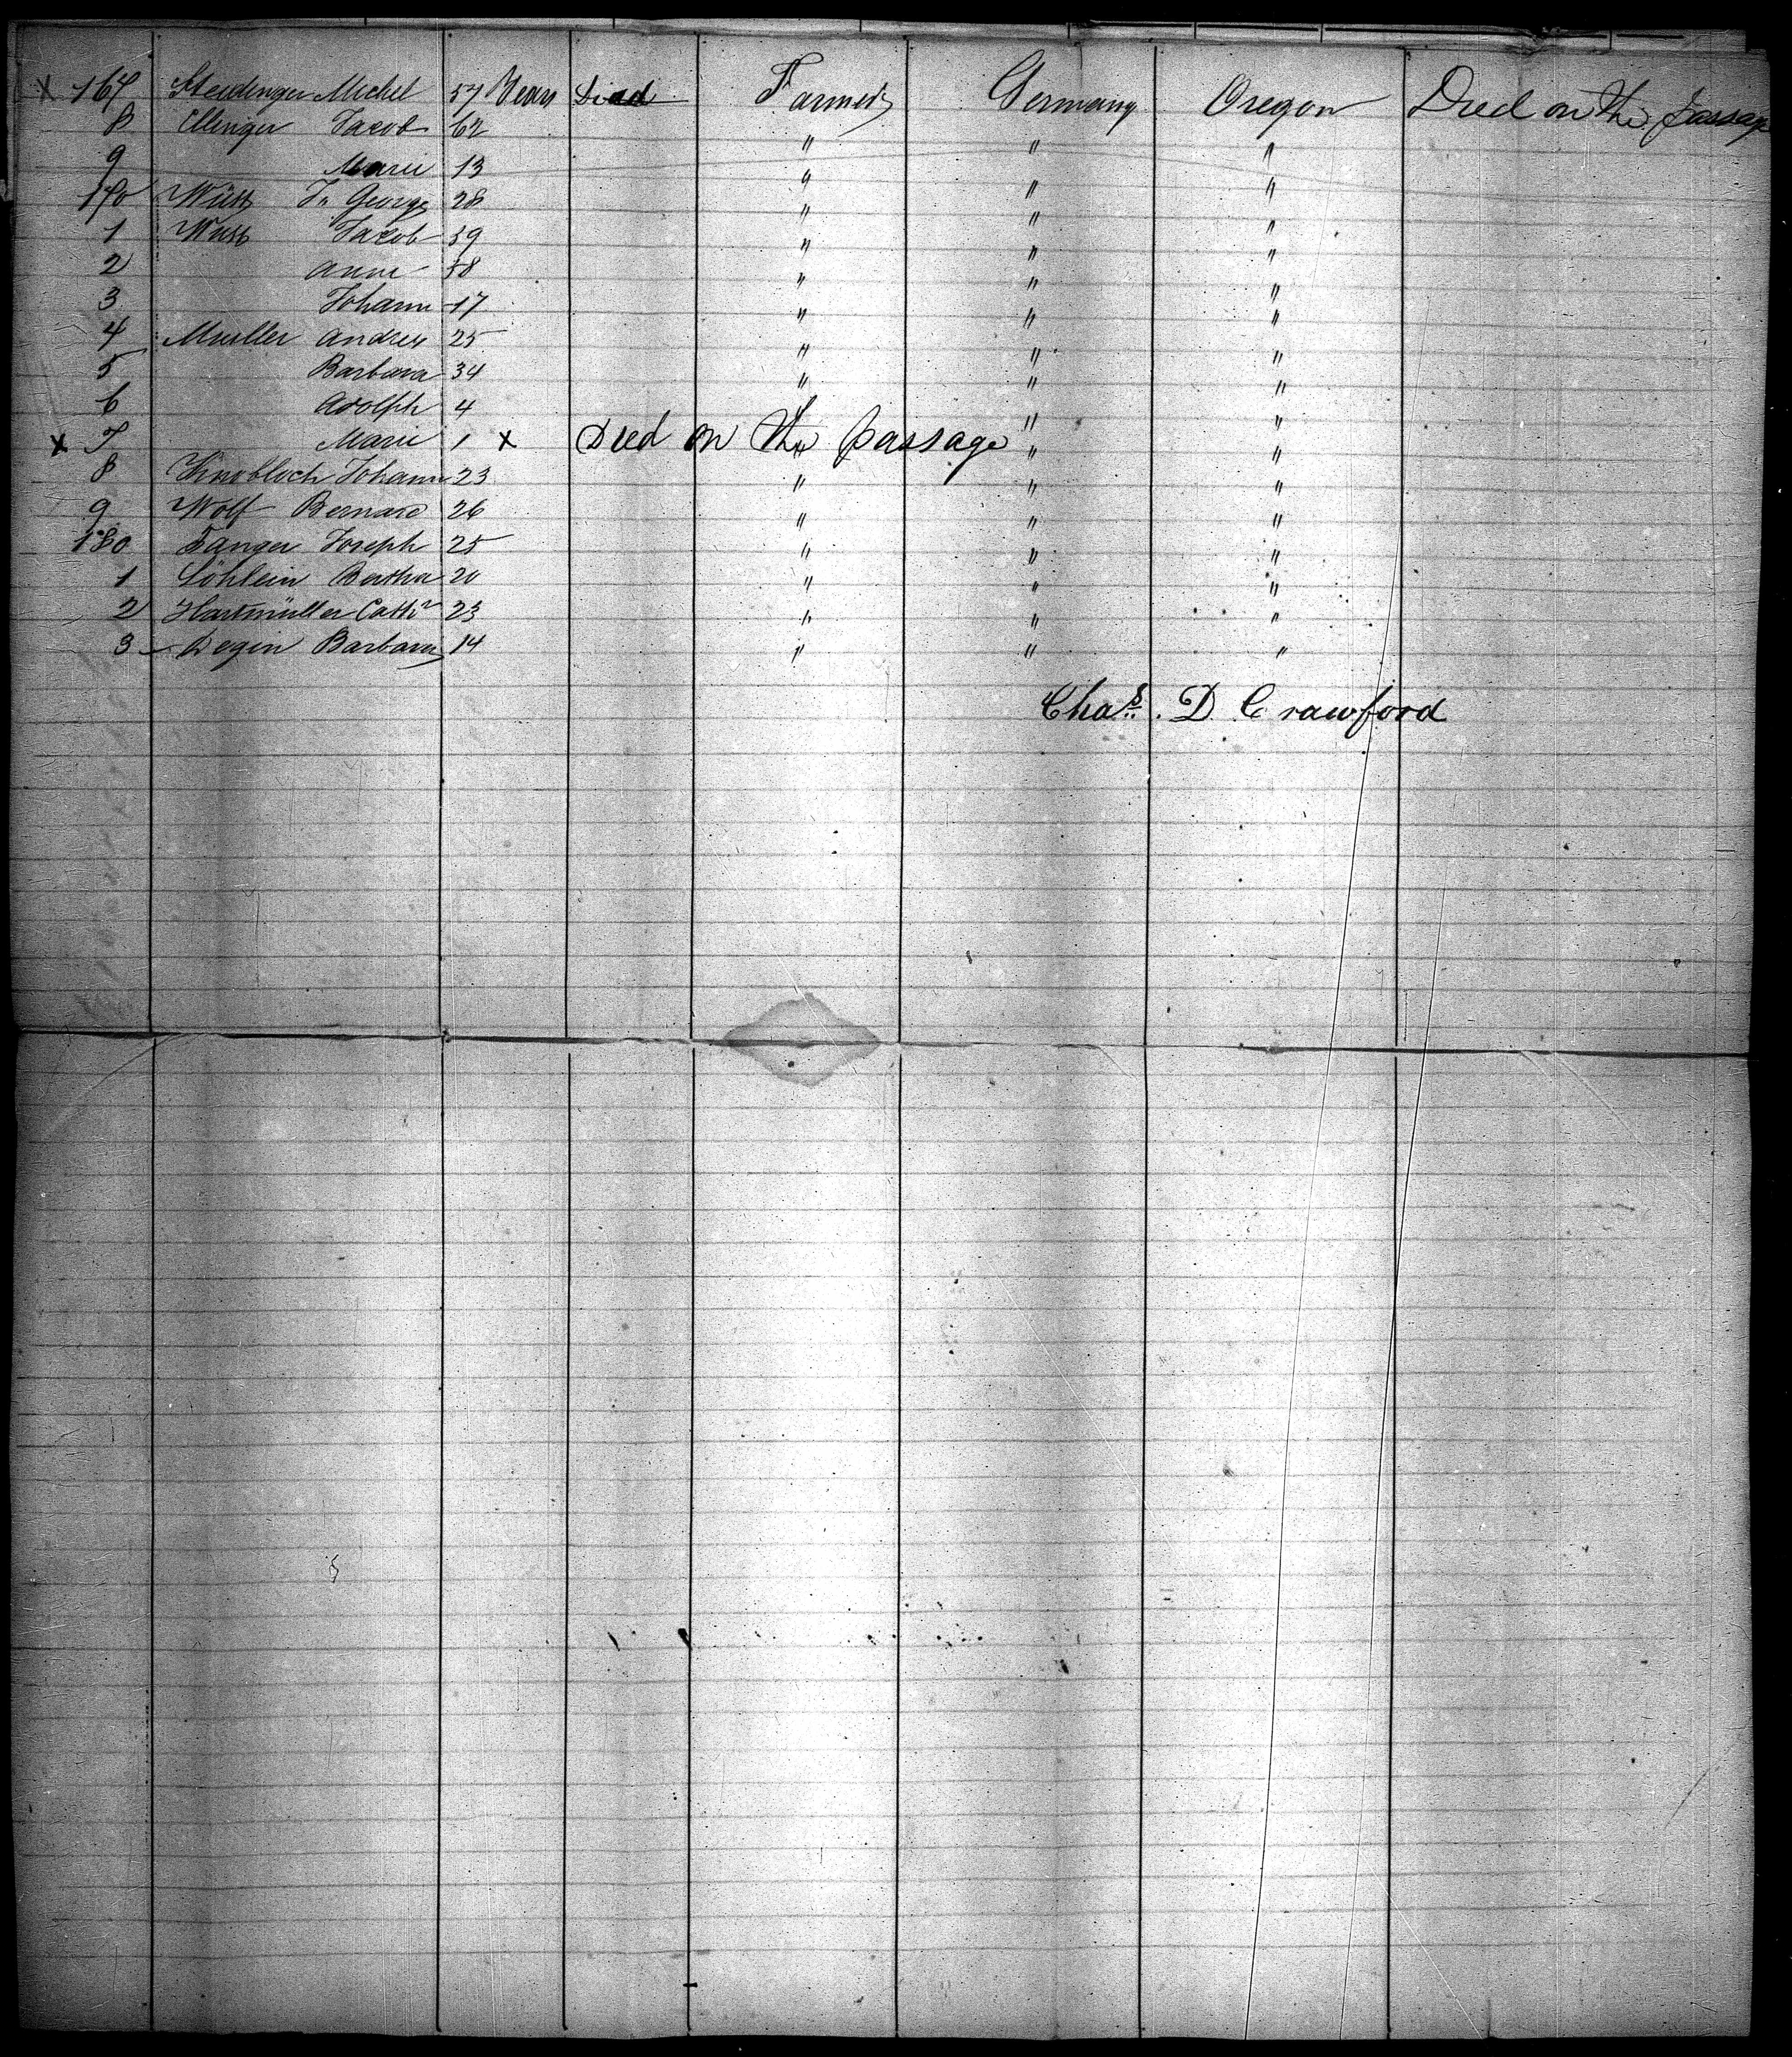 x 167 Steidinger Michel 57 Years Died Farmers Germany Oregon Died on the passage
8 Ellinger Jacob 62 " " "
9 Marie 13 " " "
170 Wüst J. George 28 " " "
1 Wüst Jacob 59 " " "
2 Anna 58 " " "
3 Johann 17 " " "
4 Mueller Andrew 25 " " "
5 Barbara 34 " " "
6 Adolph 4 " " "
x 7 Marie 1 x Died on the passage " "
8 Knobloch Johann 23 " " "
9 Wolf Bernard 26 " " "
180 Joseph 25 " " "
1 Söhlein Bertha 20 " " "
2 Hartmüller Cath 23 " " "
3 Degin Barbara 14 " " "
Chas. D. Crawford